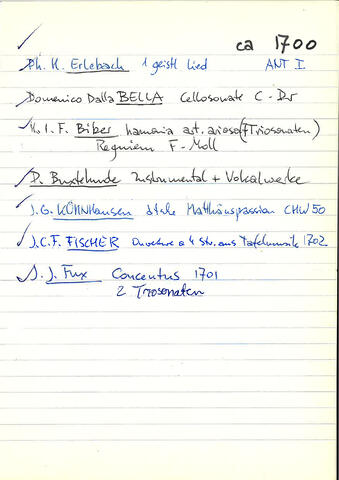 ca 1700
Ph. H. Erlebach 1 geistl Lied ANT I.
Domenico Dalla BELLA Cellosonate C-Dur
H. I. F. Biber harmonia art. ariosa (7 Triosonaten)
Requiem F-Moll
D. Buxtehude Instrumental + Vokalwerke
J. G. KÜHNHausen Matthäuspassion CHW 50
J. C. F. FISCHER Ouverture a 4 Str. aus Tafelmusik 1702
J. J. Fux Concentus 1701
2 Triosonaten